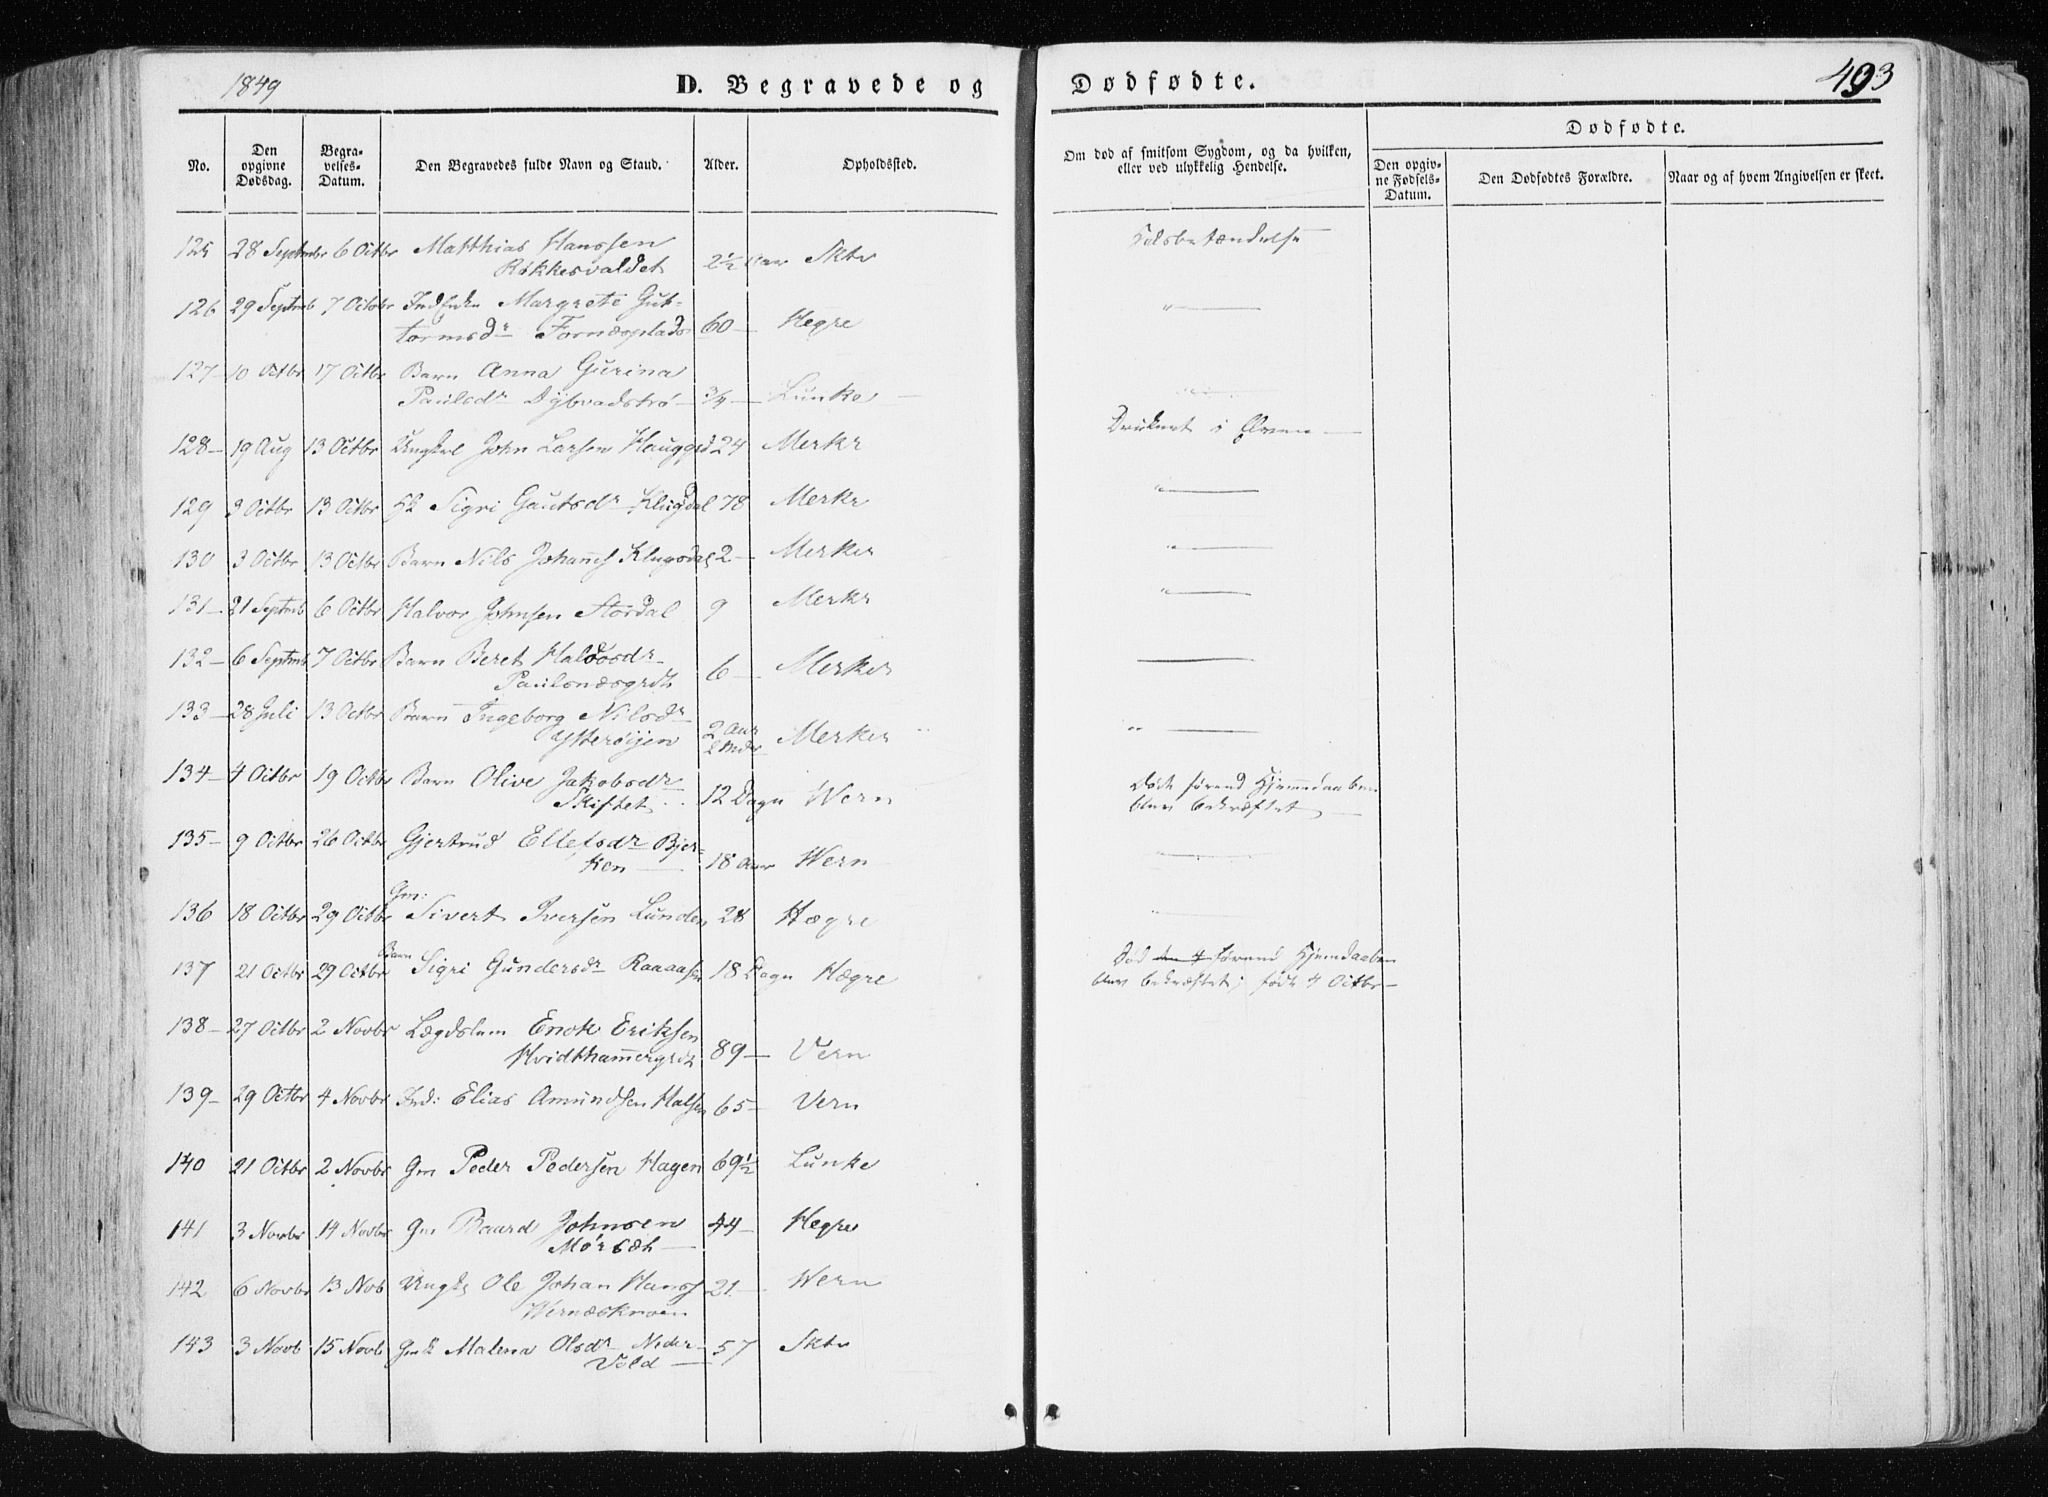 1849 D. Begravede og Dødfødte. 493
No. Den opgivne Dødsdag. Begravelses-Datum. Den Begravedes fulde Navn og Stand. Alder. Opholdssted. Om død af smitsom Sygdom, og da hvilken, eller ved ulykkelig Hendelse. Dødfødte. Den opgivne Fødsels-Datum. Den Dødfødtes Forældre. Naar og af hvem Angivelsen er skeet.
125 28 Septmbr 6 Octbr Matthias Hanssen Halsbetændelse
Røkkesvaldet 2½ Aar Sktv
126 29 Septmb 7 Octobr Ind Enke Margrete Gut-
tormsdr Fornæsplads 60 — Hegre "
127 10 Octbr 17 Octbr Barn Anna Gurina
Paulsdr Dybvadstrø ¾ — Lunke
128 — 19 Aug 13 Octbr Ungkrl John Larsen Hauggrd 24 Merkr Druknet i Elven —
129 3 Octbr 13 Octbr Sigri Gautsdr Klugsdal 78 Merkr "
130 3 Octbr 13 Octbr Barn Nils Johans Klugsdal 2 — Merker "
131 — 21 Septmb 6 Octbr Halvor Johnsen Stordal 9 Merkr "
132 — 6 Septmb 7 Octbr Barn Beret Haldosdr
Paulsnæsgrdt 6 — Merker
133 — 28 Juli 13 Octbr Barn Ingeborg Nilsdr
Ytterøijen 2 Aar 2 Mdr Merker "
134 — 4 Octbr 19 Octbr Barn Olive Jakobsdr Døde førend Hjemmedaaben
Skiftet 12 Dagn Wern blev bekræftet
135 — 9 Octbr 26 Octbr Gjertrud Ellefsdr Bjer-
ken — 18 Aar Wern "
136 18 Octbr 29 Octbr Gm: Sivert Iversen Lunden 28 Hægre
137 21 Octbr 29 Octbr Barn Sigri Gundersdr Raaaasen 18 Dagn Hægre Død den 4 førend Hjemdaaben
blev bekræftet; født 4 Octbr —
138 — 27 Octbr 2 Novbr Lægdslem Enok Eriksen
Hvidthamergrdt 89 — Vern
139 — 29 Octbr 4 Novbr Ind: Elias Amundsen Halsen 65 — Vern
140 21 Octbr 2 Novbr Gm Peder Pedersen Hagen 69½ Lunke
141 3 Novbr 14 Novbr Gm Baard Johnsen 44 — Hegre
Mørsæh —
142 6 Novbr 13 Nob Ungk Ole Johan Hans 21 — Wern
Wernæskroen
143 3 Novb 15 Novb Gmk Malena Olsdr Neder- 57 Sktv
Vold —